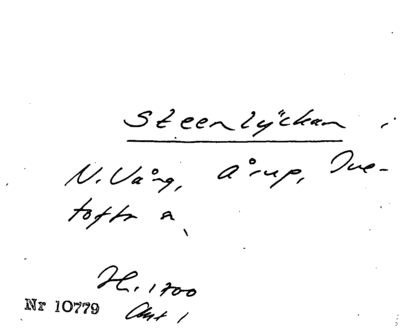 Steenlyckan i
N. Vång, Årup, Ive-
tofta
H. 1700
Nr 10779